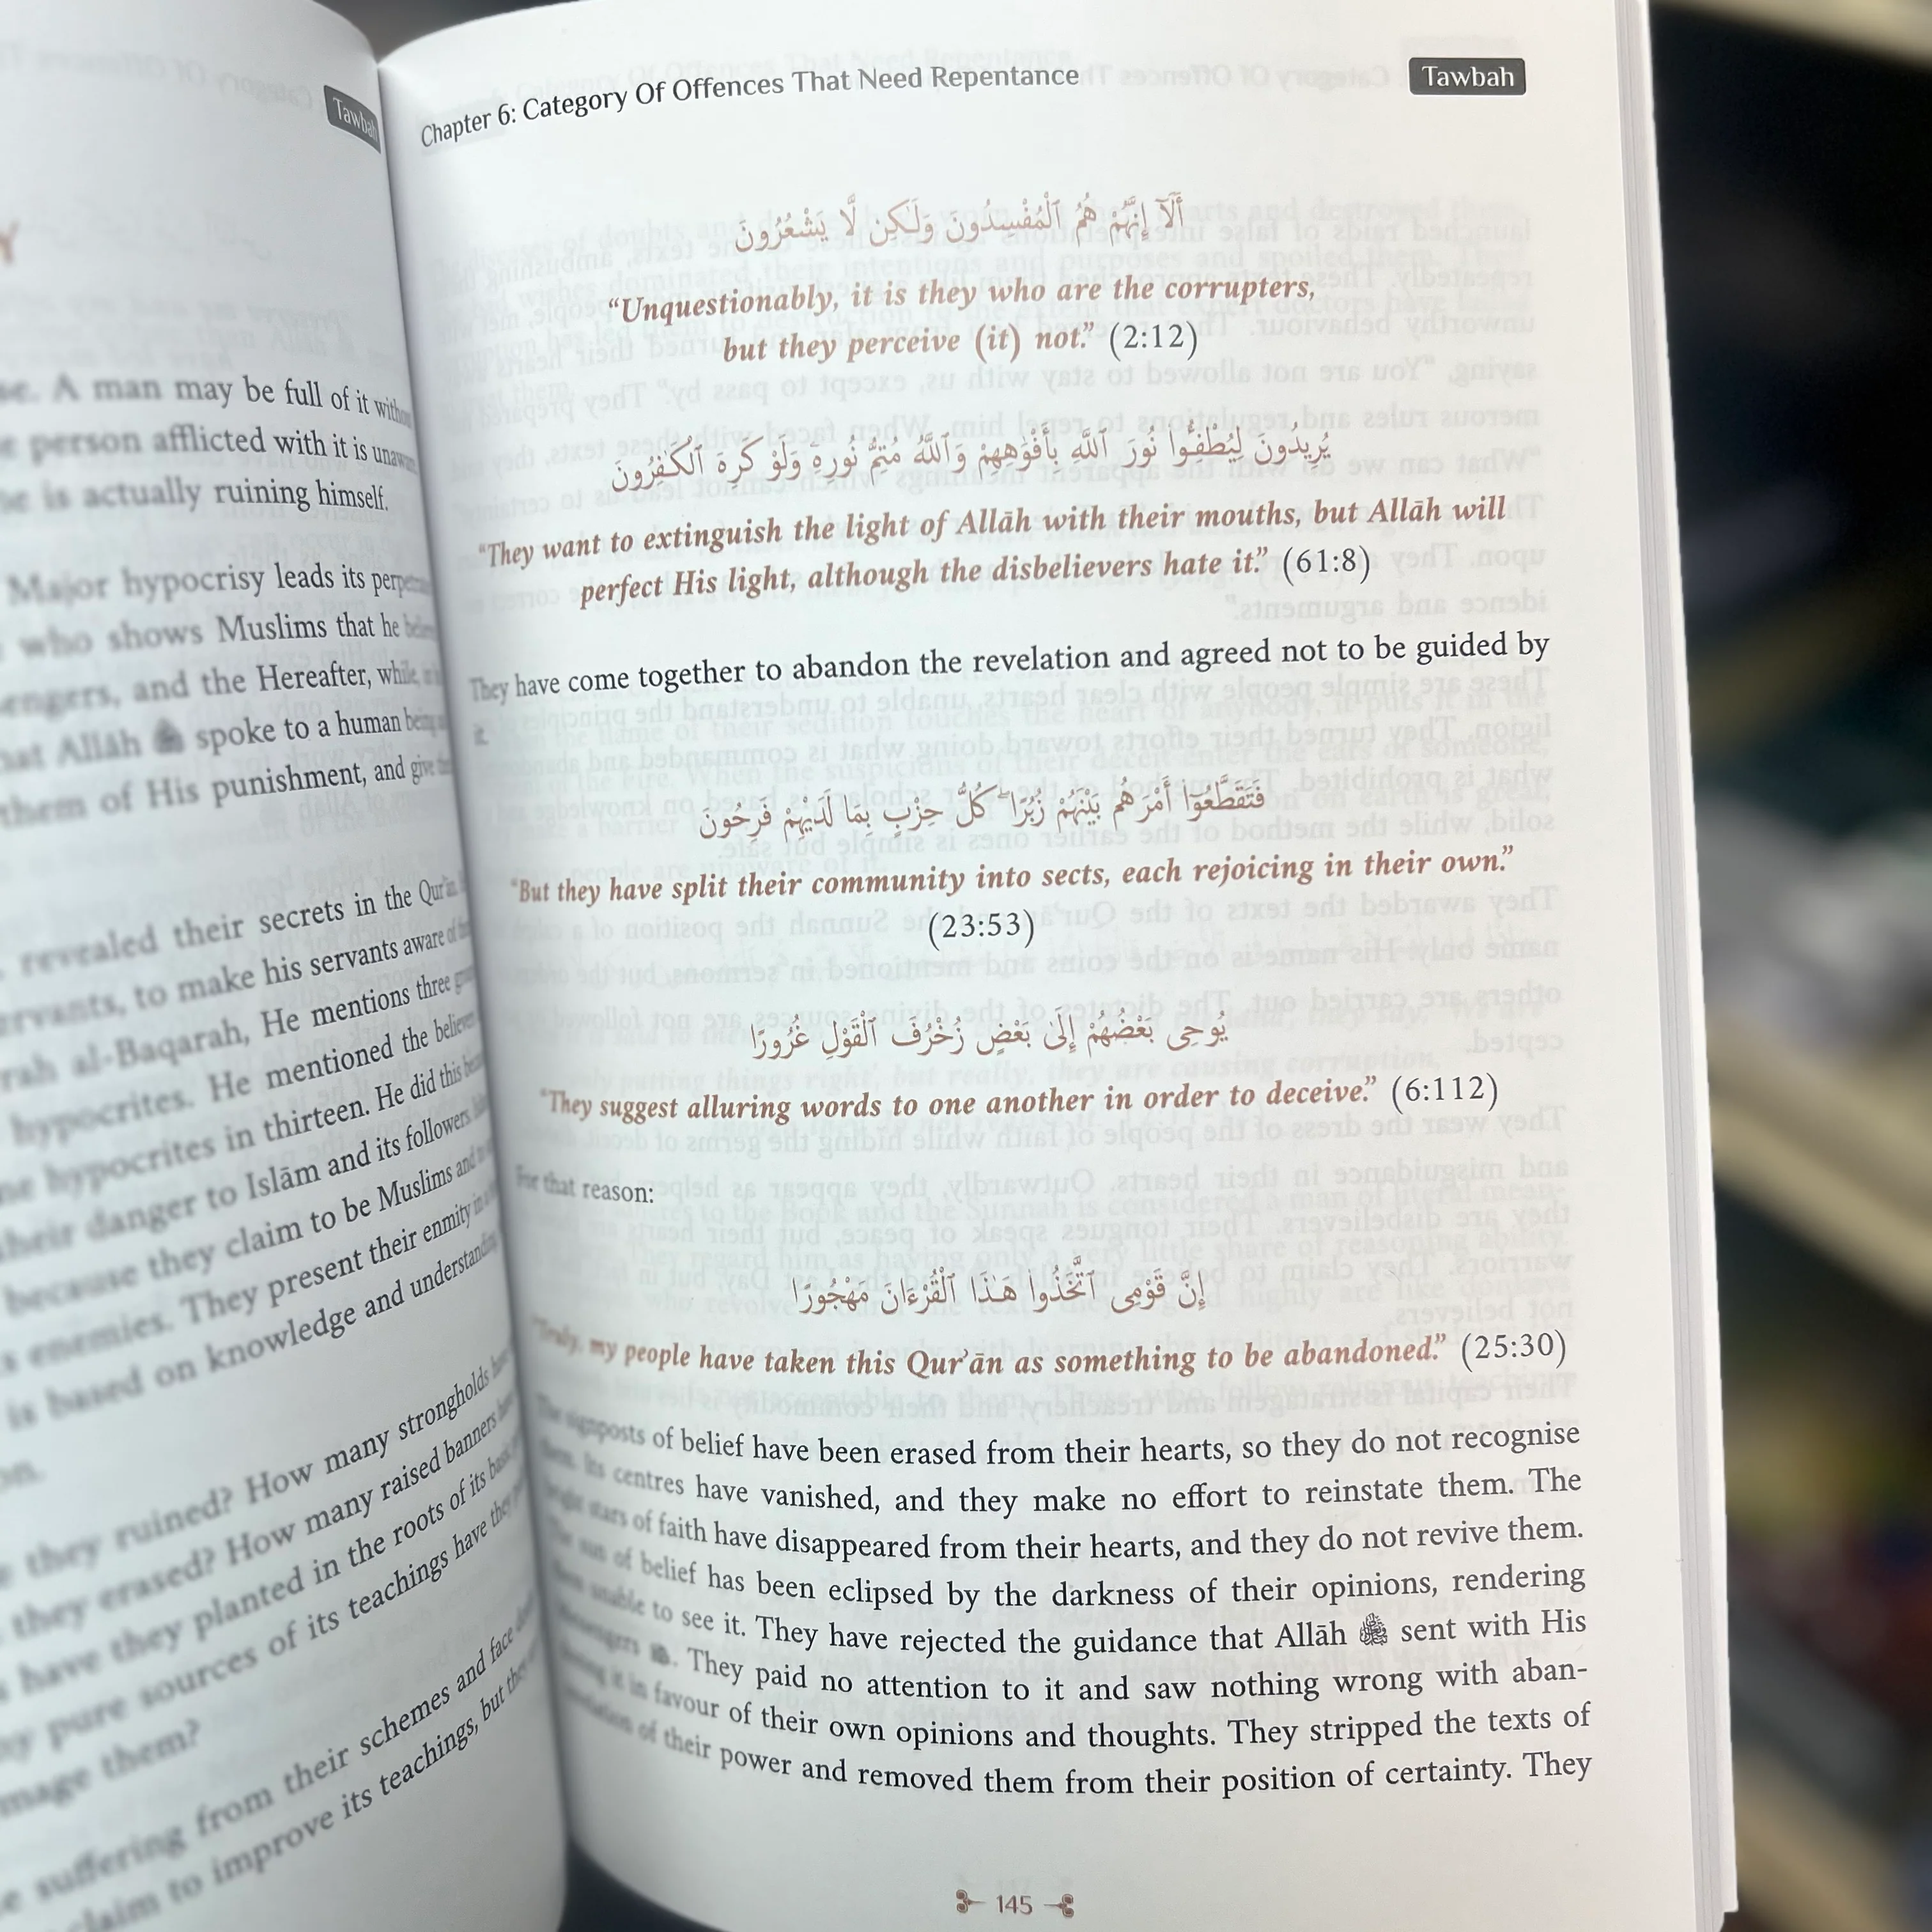 Tawbah
Y
A man may be full of it
person afflicted with it is
is actually ruining himself.
Major hypocrisy leads its
who shows Muslims that he
and the Hereafter,
Allāh spoke to a human
them of His punishment, and
revealed their secrets in the
to make his servants aware
al-Baqarah, He mentions three
hypocrites. He mentioned the
hypocrites in thirteen. He did this
their danger to Islām and its followers
because they claim to be Muslims and
enemies. They present their enmity
is based on knowledge and understanding
they ruined? How many strongholds
they erased? How many raised banners
have they planted in the roots of its
pure sources of its teachings have
them?
suffering from their schemes and face
claim to improve its teachings, but
Chapter 6: Category Of Offences That Need Repentance
Tawbah
أَلَآ إِنَّهُمْ هُمُ ٱلْمُفْسِدُونَ وَلَٰكِن لَّا يَشْعُرُونَ
“Unquestionably, it is they who are the corrupters,
but they perceive (it) not.” (2:12)
يُرِيدُونَ لِيُطْفِـُٔوا۟ نُورَ ٱللَّهِ بِأَفْوَٰهِهِمْ وَٱللَّهُ مُتِمُّ نُورِهِۦ وَلَوْ كَرِهَ ٱلْكَٰفِرُونَ
“They want to extinguish the light of Allāh with their mouths, but Allāh will
perfect His light, although the disbelievers hate it.” (61:8)
They have come together to abandon the revelation and agreed not to be guided by
it.
فَتَقَطَّعُوٓا۟ أَمْرَهُم بَيْنَهُمْ زُبُرًا ۖ كُلُّ حِزْبٍۭ بِمَا لَدَيْهِمْ فَرِحُونَ
“But they have split their community into sects, each rejoicing in their own.”
(23:53)
يُوحِى بَعْضُهُمْ إِلَىٰ بَعْضٍ زُخْرُفَ ٱلْقَوْلِ غُرُورًا
“They suggest alluring words to one another in order to deceive.” (6:112)
For that reason:
إِنَّ قَوْمِى ٱتَّخَذُوا۟ هَٰذَا ٱلْقُرْءَانَ مَهْجُورًا
“Truly, my people have taken this Qur’ān as something to be abandoned.” (25:30)
The signposts of belief have been erased from their hearts, so they do not recognise
them. Its centres have vanished, and they make no effort to reinstate them. The
bright stars of faith have disappeared from their hearts, and they do not revive them.
The sun of belief has been eclipsed by the darkness of their opinions, rendering
them unable to see it. They have rejected the guidance that Allāh ﷻ sent with His
Messengers. They paid no attention to it and saw nothing wrong with aban-
doning it in favour of their own opinions and thoughts. They stripped the texts of
revelation of their power and removed them from their position of certainty. They
145